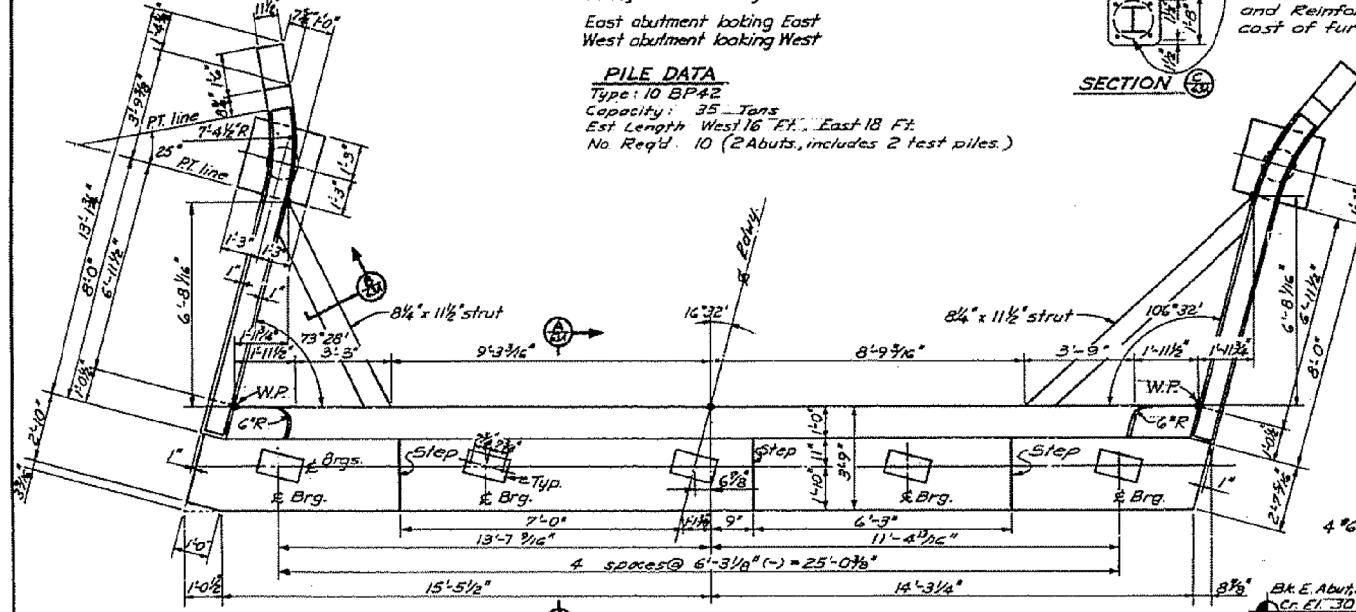 East abutment looking East
West abutment looking West
PILE DATA
Type: 10 BP42
Capacity: 35 Tons
Est Length West 16 Ft., East 18 Ft.
No. Req'd. 10 (2 Abuts., includes 2 test piles.)
SECTION
1'-8"
1½"
and Reinfo
cost of fur
1'-0"
3'-9⅜"
P.T. line
7'-4½"R
25°
P.T. line
1'-3"
1'-3"
1'-3"
1'-3"
8'-0"
6'-11½"
6'-8 1/16"
1"
1"
8¼" x 11½" strut
73°28'
1'-11½"
3'-3"
9'-3 3/16"
℄ Rdwy.
16°32'
8'-9 3/16"
8¼" x 11½" strut
106°32'
3'-9"
1'-11½"
1'-11¾"
6'-8 1/16"
6'-11½"
8'-0"
W.P.
W.P.
6"R
6"R
1'-0½"
2'-10"
1"
℄ Brgs.
Step
Typ.
℄ Brg.
℄ Brg.
6⅞"
Step
1'-0"
11"
1'-10"
3'-9"
℄ Brg.
Step
℄ Brg.
1"
1'-0½"
2'-7 5/16"
7'-0"
9"
6'-3"
13'-7 9/16"
11'-4 13/16"
4 spaces @ 6'-3⅛" (-) = 25'-0⅜"
1'-0"
1'-0½"
15'-5½"
14'-3¼"
8⅞"
4 #6
Bk. E. Abut.
Cr. El. 30